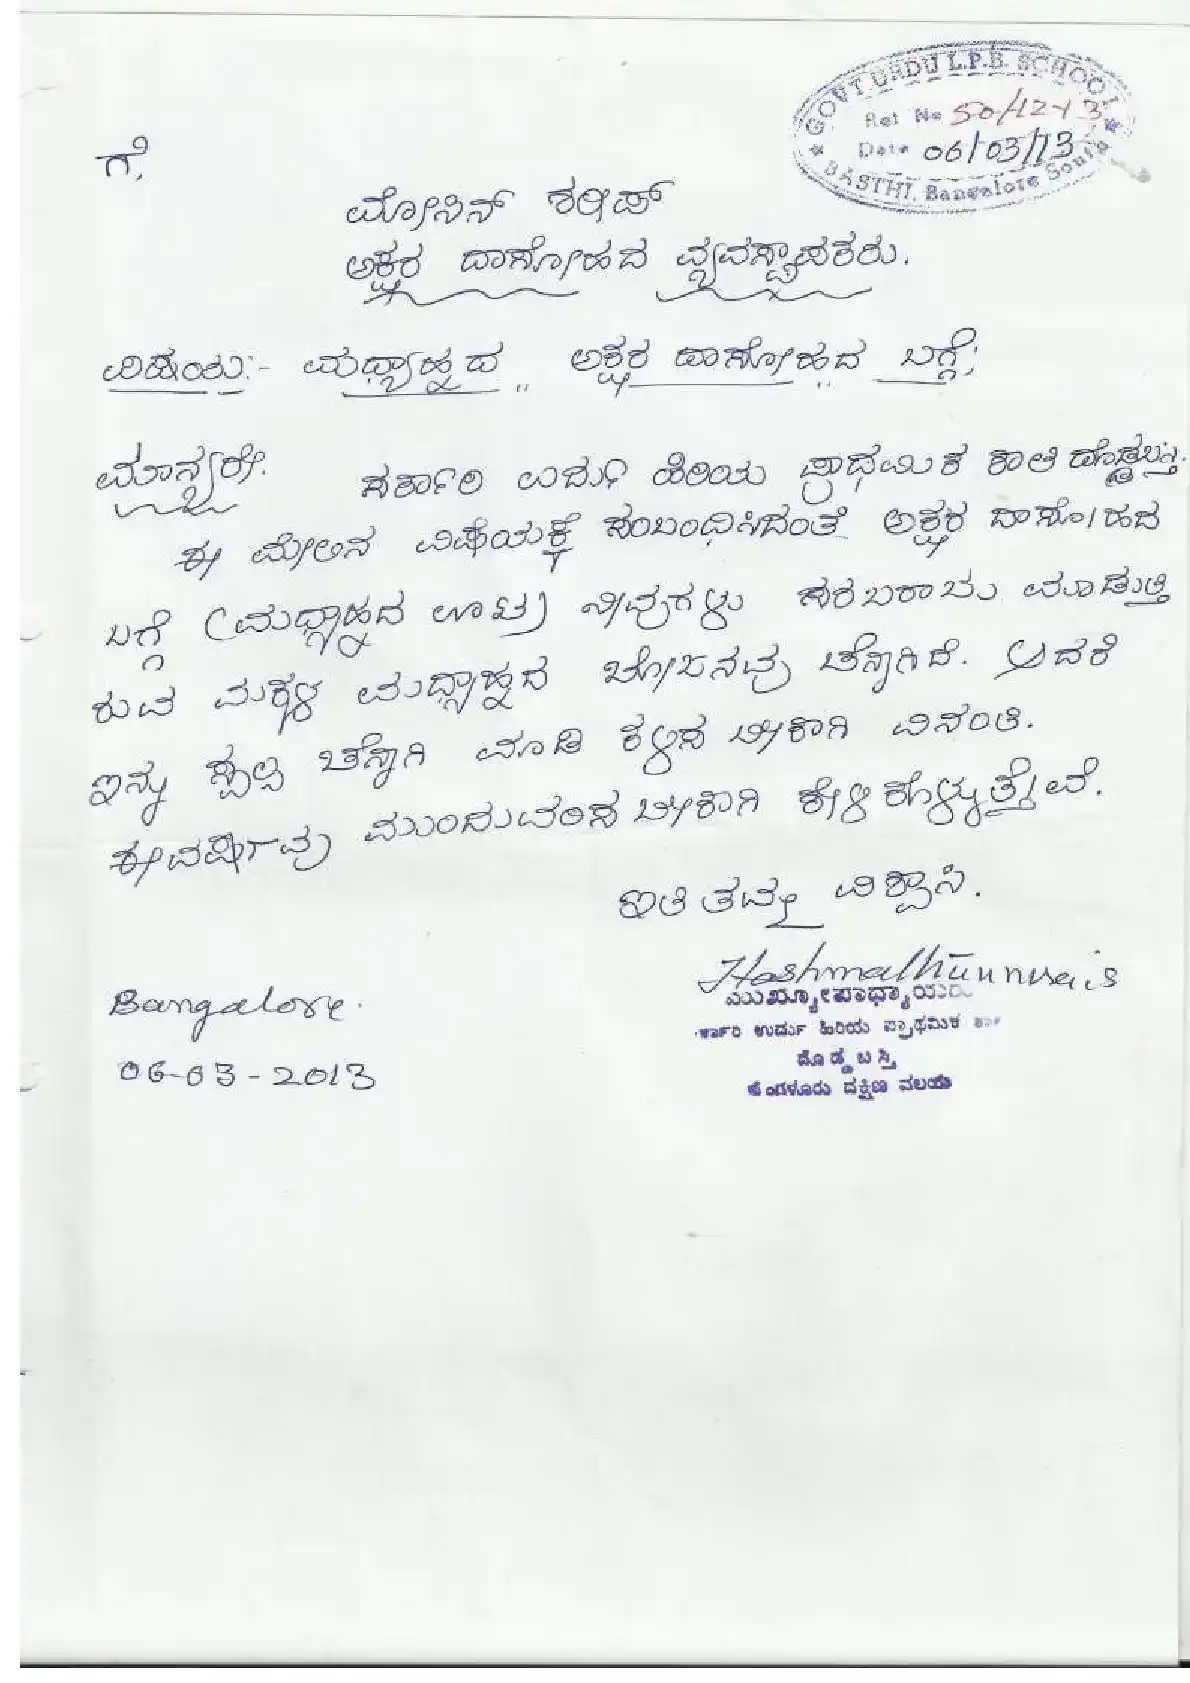 GOVT URDU L.P.B. SCHOOL
Ref No 50/12-13
Date 06/03/13
BASTHI, Bangalore South
ಗೆ,
ಮೋಸಿನ್ ಶರೀಫ್
ಅಕ್ಷರ ದಾಸೋಹದ ವ್ಯವಸ್ಥಾಪಕರು.
ವಿಷಯ:- ಮಧ್ಯಾಹ್ನದ ,, ಅಕ್ಷರ ದಾಸೋಹದ ,, ಬಗ್ಗೆ;
ಮಾನ್ಯರೇ. ಸರ್ಕಾರಿ ಉರ್ದು ಹಿರಿಯ ಪ್ರಾಥಮಿಕ ಶಾಲೆ ದೊಡ್ಡಬಸ್ತಿ.
ಈ ಮೇಲಿನ ವಿಷಯಕ್ಕೆ ಸಂಬಂಧಿಸಿದಂತೆ ಅಕ್ಷರ ದಾಸೋಹದ
ಬಗ್ಗೆ (ಮಧ್ಯಾಹ್ನದ ಊಟ) ನೀವುಗಳು ಸರಬರಾಬು ಮಾಡುತ್ತಿ
ರುವ ಮಕ್ಕಳ ಮಧ್ಯಾಹ್ನದ ಬೋಜನವು ಚೆನ್ನಾಗಿದೆ. ಅದಕೆ
ಇನ್ನು ಸ್ವಲ್ಪ ಚೆನ್ನಾಗಿ ಮಾಡಿ ಕಳಿಸ ಬೇಕಾಗಿ ವಿನಂತಿ.
ಈವರ್ಷವು ಮುಂದುವರಿಸ ಬೇಕಾಗಿ ಕೇಳಿಕೊಳ್ಳುತ್ತೇವೆ.
ಇತಿ ತಮ್ಮ ವಿಶ್ವಾಸಿ.
Hashmathunnisa
ಮುಖ್ಯೋಪಾಧ್ಯಾಯರು
ರ್ಕಾರಿ ಉರ್ದು ಹಿರಿಯ ಪ್ರಾಥಮಿಕ ಶಾಲೆ
ದೊಡ್ಡಬಸ್ತಿ
ಬೆಂಗಳೂರು ದಕ್ಷಿಣ ವಲಯ
Bangalore.
06-03-2013